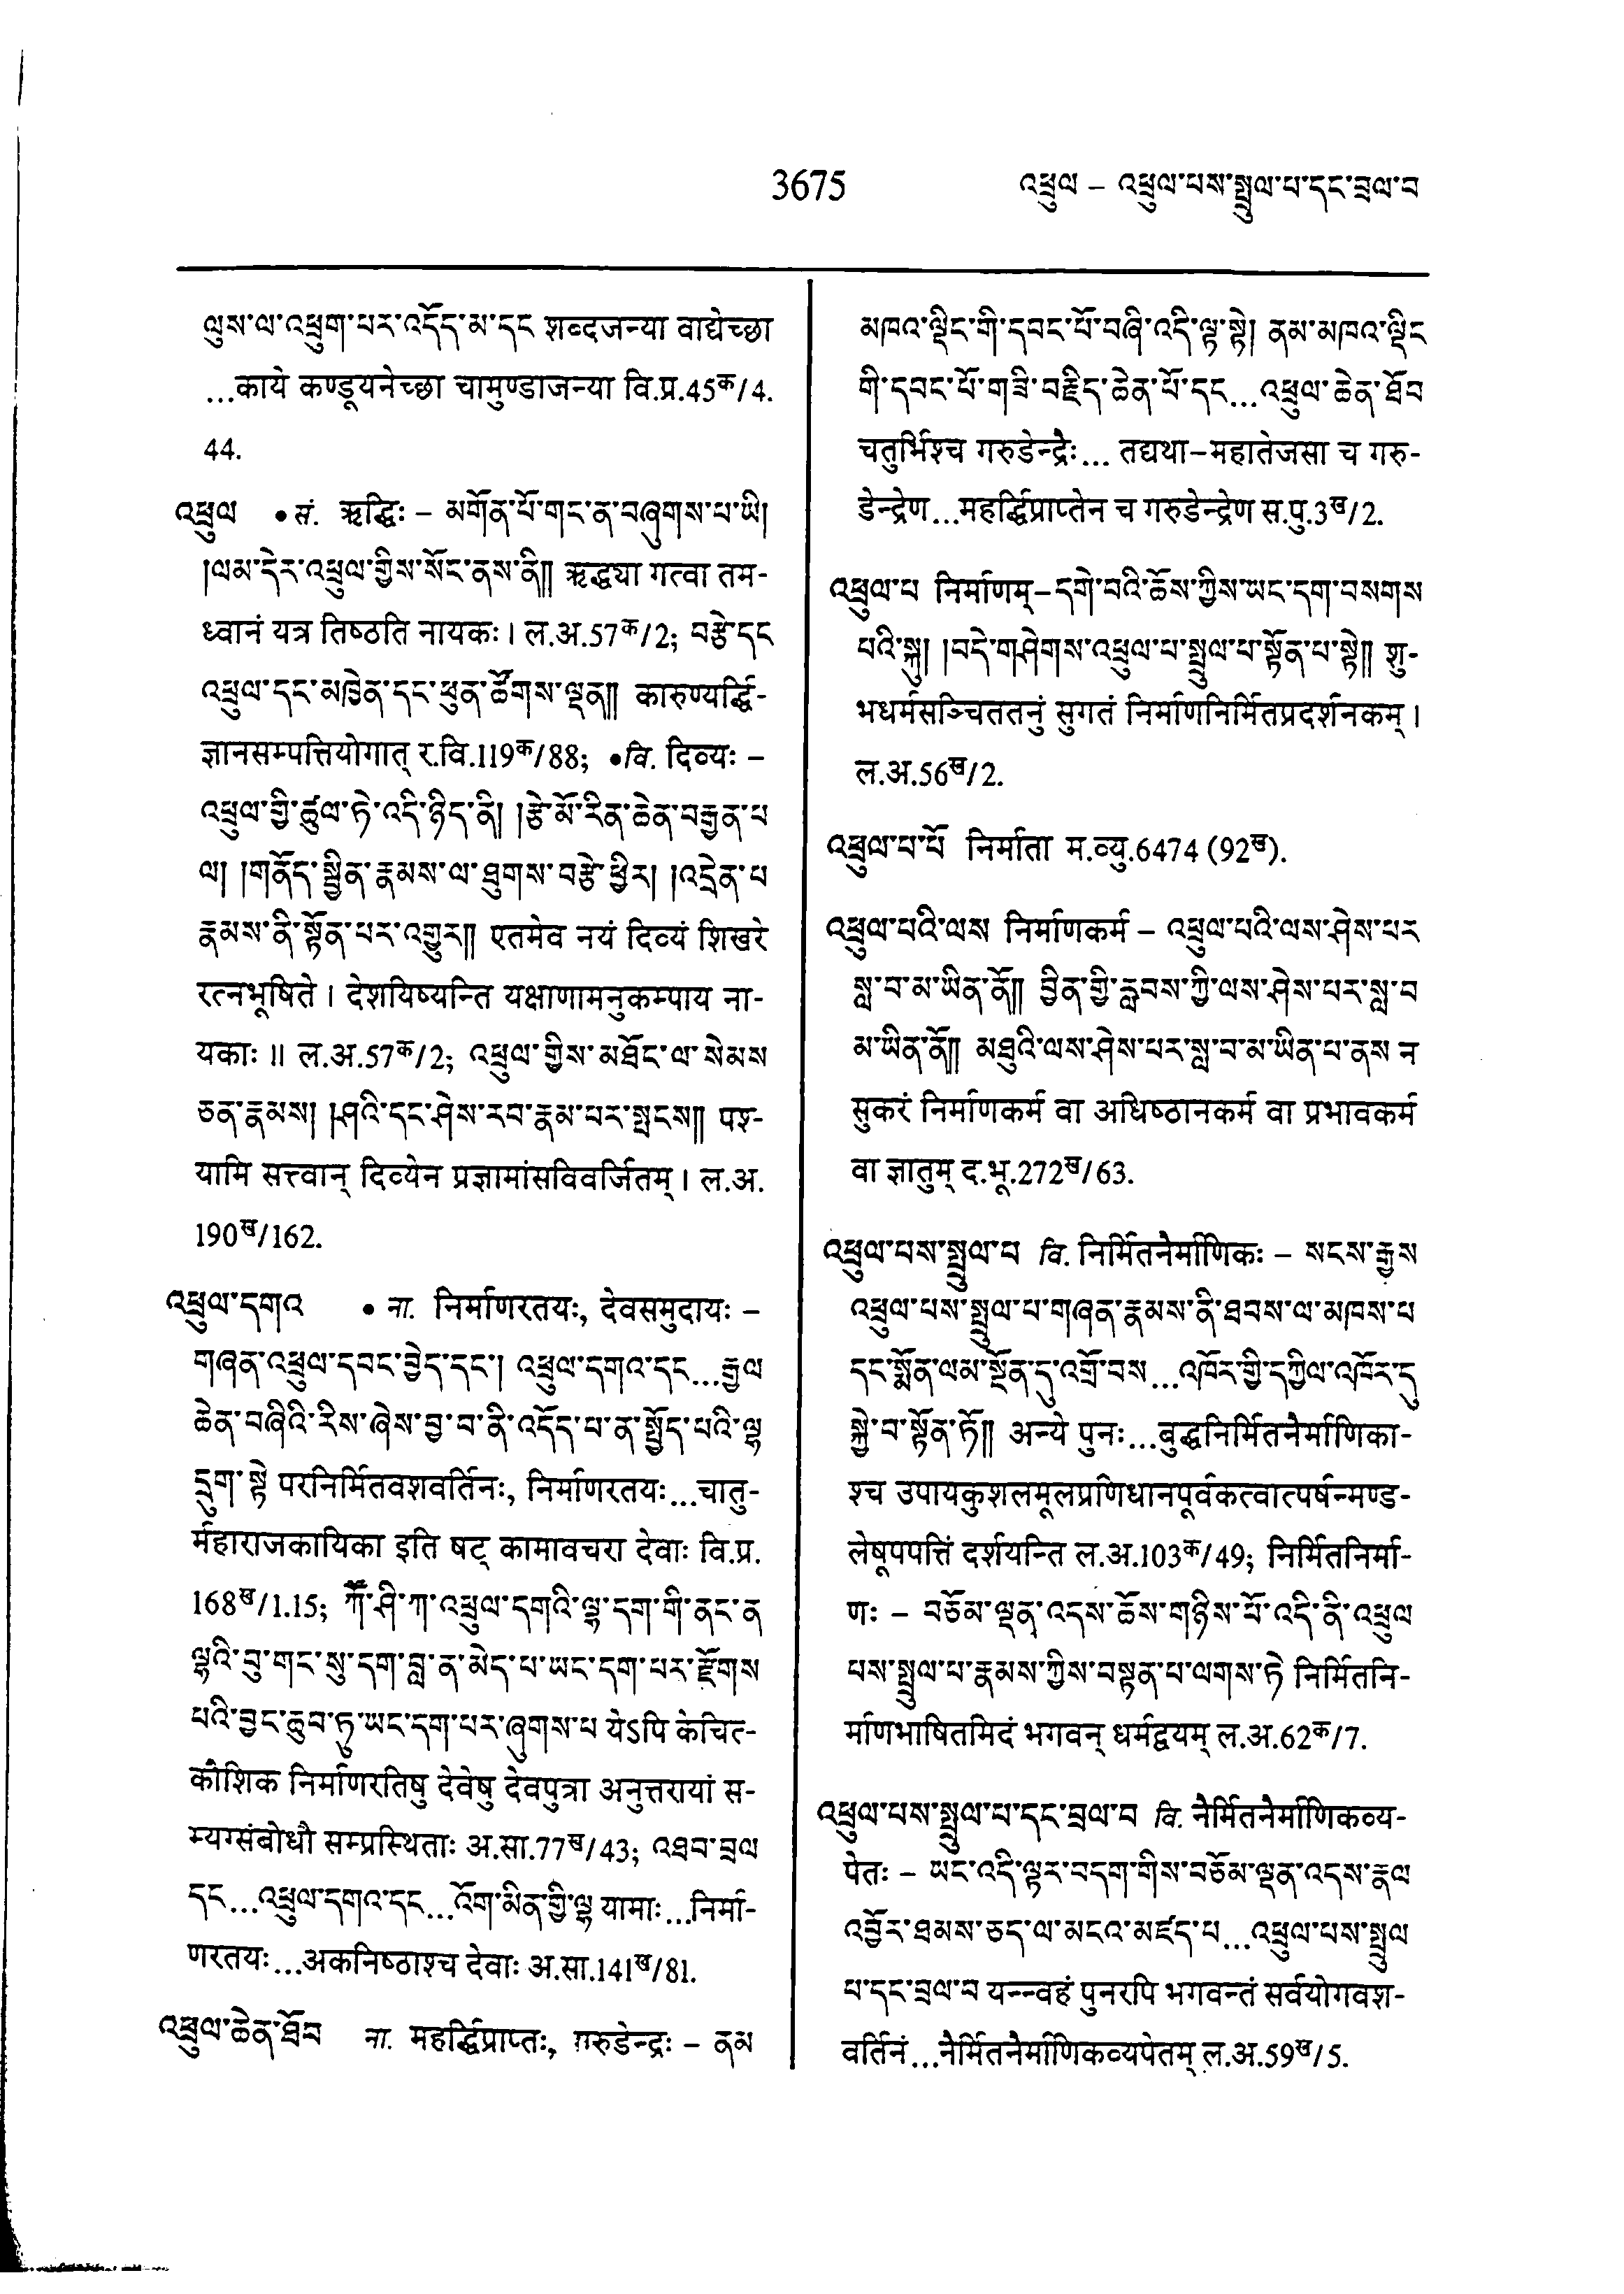 3675
འཕྲུལ – འཕྲུལ་པས་སྤྲུལ་པ་དང་བྲལ་བ
ལུས་ལ་འཕྲུག་པར་འདོད་མ་དང शब्दजन्या वाद्येच्छा
...काये कण्डूयनेच्छा चामुण्डाजन्या वि.प्र.45क/4.
44.
འཕྲུལ • सं. ऋद्धिः – མགོན་པོ་གང་ན་བཞུགས་པ་ཡི།
།ལམ་དེར་འཕྲུལ་གྱིས་སོང་ནས་ནི།། ऋद्ध्या गत्वा तम-
ध्वानं यत्र तिष्ठति नायकः। ल.अ.57क/2; བརྩེ་དང
འཕྲུལ་དང་མཁྱེན་དང་ཕུན་ཚོགས་ལྡན།། कारुण्यर्द्धि-
ज्ञानसम्पत्तियोगात् र.वि.119क/88; •वि. दिव्यः –
འཕྲུལ་གྱི་ཚུལ་ཏེ་འདི་ཉིད་ནི། །རྩེ་མོ་རིན་ཆེན་བརྒྱན་པ
ལ། །གནོད་སྦྱིན་རྣམས་ལ་ཐུགས་བརྩེ་ཕྱིར། །འདྲེན་པ
རྣམས་ནི་སྟོན་པར་འགྱུར།། एतमेव नयं दिव्यं शिखरे
रत्नभूषिते। देशयिष्यन्ति यक्षाणामनुकम्पाय ना-
यकाः॥ ल.अ.57क/2; འཕྲུལ་གྱིས་མཐོང་ལ་སེམས
ཅན་རྣམས། །ཤའི་དང་ཤེས་རབ་རྣམ་པར་སྤངས།། पश्-
यामि सत्त्वान् दिव्येन प्रज्ञामांसविवर्जितम्। ल.अ.
190ख/162.
འཕྲུལ་དགའ • ना. निर्माणरतयः, देवसमुदायः –
གཞན་འཕྲུལ་དབང་བྱེད་དང་། འཕྲུལ་དགའ་དང...རྒྱལ
ཆེན་བཞིའི་རིས་ཞེས་བྱ་བ་ནི་འདོད་པ་ན་སྤྱོད་པའི་ལྷ
དྲུག་སྟེ परनिर्मितवशवर्तिनः, निर्माणरतयः...चातु-
र्महाराजकायिका इति षट् कामावचरा देवाः वि.प्र.
168ख/1.15; ཀཽ་ཤི་ཀ་འཕྲུལ་དགའི་ལྷ་དག་གི་ནང་ན
ལྷའི་བུ་གང་སུ་དག་བླ་ན་མེད་པ་ཡང་དག་པར་རྫོགས
པའི་བྱང་ཆུབ་ཏུ་ཡང་དག་པར་ཞུགས་པ येऽपि केचित-
कौशिक निर्माणरतिषु देवेषु देवपुत्रा अनुत्तरायां स-
म्यग्संबोधौ सम्प्रस्थिताः अ.सा.77ख/43; འཐབ་བྲལ
དང...འཕྲུལ་དགའ་དང...འོག་མིན་གྱི་ལྷ यामाः...निर्मा-
णरतयः...अकनिष्ठाश्च देवाः अ.सा.141ख/81.
འཕྲུལ་ཆེན་ཐོབ ना. महर्द्धिप्राप्तः, गरुडेन्द्रः – ནམ
མཁའ་ལྡིང་གི་དབང་པོ་བཞི་འདི་ལྟ་སྟེ། ནམ་མཁའ་ལྡིང
གི་དབང་པོ་གཟི་བརྗིད་ཆེན་པོ་དང...འཕྲུལ་ཆེན་ཐོབ
चतुर्भिश्च गरुडेन्द्रैः... तद्यथा–महातेजसा च गरु-
डेन्द्रेण...महर्द्धिप्राप्तेन च गरुडेन्द्रेण स.पु.3ख/2.
འཕྲུལ་པ निर्माणम्–དགེ་བའི་ཆོས་ཀྱིས་ཡང་དག་བསགས
པའི་སྐུ། །བདེ་གཤེགས་འཕྲུལ་པ་སྤྲུལ་པ་སྟོན་པ་སྟེ།། शु-
भधर्मसञ्चिततनुं सुगतं निर्माणनिर्मितप्रदर्शनकम्।
ल.अ.56ख/2.
འཕྲུལ་པ་པོ निर्माता म.व्यु.6474 (92ख).
འཕྲུལ་པའི་ལས निर्माणकर्म – འཕྲུལ་པའི་ལས་ཤེས་པར
སླ་བ་མ་ཡིན་ནོ།། བྱིན་གྱི་རླབས་ཀྱི་ལས་ཤེས་པར་སླ་བ
མ་ཡིན་ནོ།། མཐུའི་ལས་ཤེས་པར་སླ་བ་མ་ཡིན་པ་ནས न
सुकरं निर्माणकर्म वा अधिष्ठानकर्म वा प्रभावकर्म
वा ज्ञातुम् द.भू.272ख/63.
འཕྲུལ་པས་སྤྲུལ་པ वि. निर्मितनैर्माणिकः – སངས་རྒྱས
འཕྲུལ་པས་སྤྲུལ་པ་གཞན་རྣམས་ནི་ཐབས་ལ་མཁས་པ
དང་སྨོན་ལམ་སྔོན་དུ་འགྲོ་བས...འཁོར་གྱི་དཀྱིལ་འཁོར་དུ
སྐྱེ་བ་སྟོན་ཏོ།། अन्ये पुनः...बुद्धनिर्मितनैर्माणिका-
श्च उपायकुशलमूलप्रणिधानपूर्वकत्वात्पर्षन्मण्ड-
लेषूपपत्तिं दर्शयन्ति ल.अ.103क/49; निर्मितनिर्मा-
णः – བཅོམ་ལྡན་འདས་ཆོས་གཉིས་པོ་འདི་ནི་འཕྲུལ
པས་སྤྲུལ་པ་རྣམས་ཀྱིས་བསྟན་པ་ལགས་ཏེ निर्मितनि-
र्माणभाषितमिदं भगवन् धर्मद्वयम् ल.अ.62क/7.
འཕྲུལ་པས་སྤྲུལ་པ་དང་བྲལ་བ वि. नैर्मितनैर्माणिकव्य-
पेतः – ཡང་འདི་ལྟར་བདག་གིས་བཅོམ་ལྡན་འདས་རྣལ
འབྱོར་ཐམས་ཅད་ལ་མངའ་མཛད་པ...འཕྲུལ་པས་སྤྲུལ
པ་དང་བྲལ་བ यन्न्वहं पुनरपि भगवन्तं सर्वयोगवश-
वर्तिनं...नैर्मितनैर्माणिकव्यपेतम् ल.अ.59ख/5.